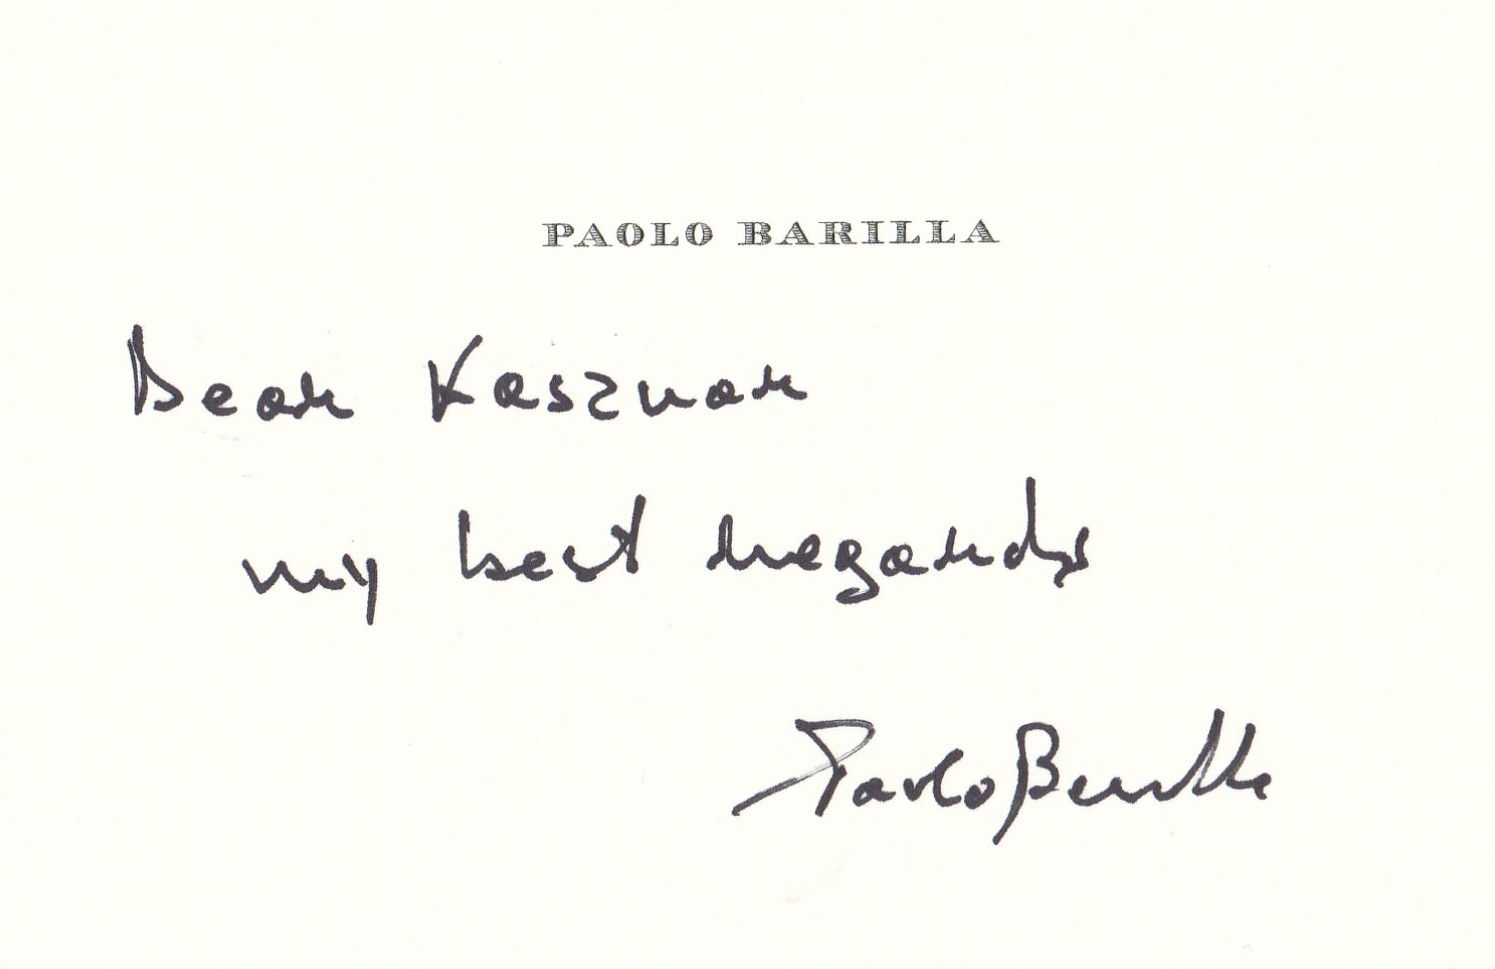 PAOLO BARILLA
Dear Kasznar
my best regards
Paolo Barilla